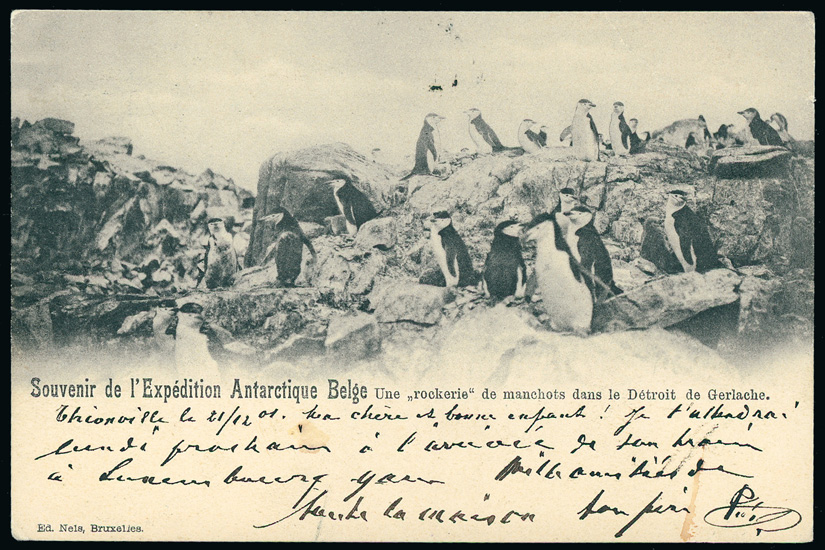 Souvenir de l'Expédition Antarctique Belge Une „rockerie“ de manchots dans le Détroit de Gerlache.
Thionville le 21/12 01. Ma chère et bonne enfant ! Je t'attendrai
lundi prochain à l'arrivée de ton train
à Luxembourg gare Mille amitiés de
toute la maison ton père
Ed. Nels, Bruxelles.